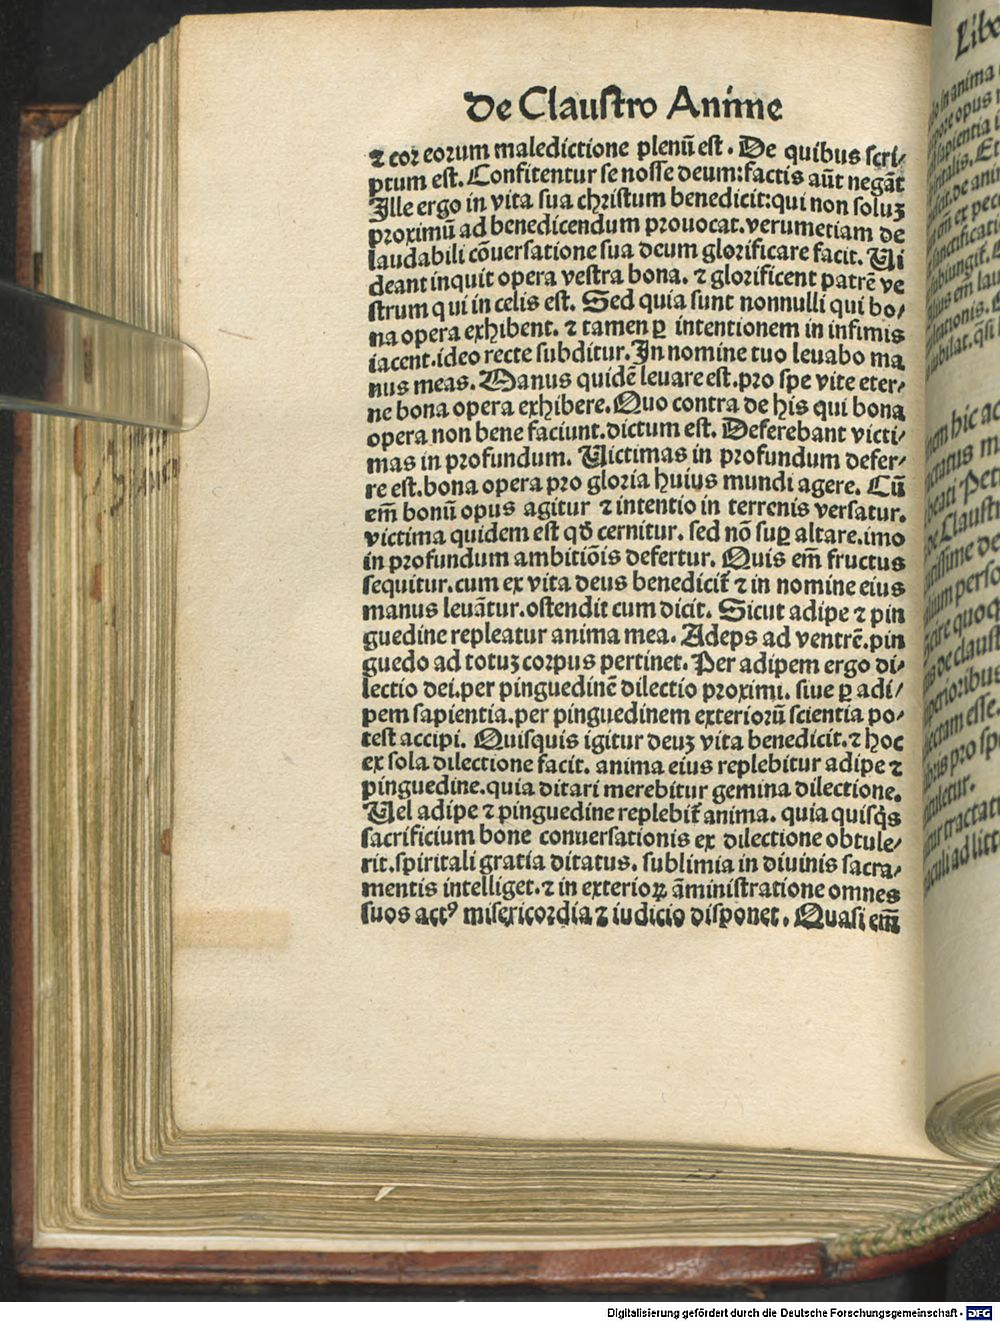 De Claustro Anime
⁊ cor eorum maledictione plenū est. De quibus scri/
ptum est. Confitentur se nosse deum: factis aūt negāt
Ille ergo in vita sua christum benedicit: qui non soluꝫ
proximū ad benedicendum prouocat. verumetiam de
laudabili cōuersatione sua deum glorificare facit. Ui
deant inquit opera vestra bona. ⁊ glorificent patrē ve
strum qui in celis est. Sed quia sunt nonnulli qui bo/
na opera exhibent. ⁊ tamen ꝑ intentionem in infimis
iacent. ideo recte subditur. In nomine tuo leuabo ma
nus meas. Manus quidē leuare est. pro spe vite eter/
ne bona opera exhibere. Quo contra de his qui bona
opera non bene faciunt. dictum est. Deferebant victi/
mas in profundum. Uictimas in profundum defer/
re est. bona opera pro gloria huius mundi agere. Cū
em̄ bonū opus agitur ⁊ intentio in terrenis versatur.
victima quidem est qd̄ cernitur. sed nō suꝑ altare. imo
in profundum ambitiōis defertur. Quis em̄ fructus
sequitur. cum ex vita deus benedicit᷑ ⁊ in nomine eius
manus leuātur. ostendit cum dicit. Sicut adipe ⁊ pin
guedine repleatur anima mea. Adeps ad ventrē. pin
guedo ad totuꝫ corpus pertinet. Per adipem ergo di/
lectio dei. per pinguedinē dilectio proximi. siue ꝑ adi/
pem sapientia. per pinguedinem exteriorū scientia po/
test accipi. Quisquis igitur deuꝫ vita benedicit. ⁊ hoc
ex sola dilectione facit. anima eius replebitur adipe ⁊
pinguedine. quia ditari merebitur gemina dilectione.
Uel adipe ⁊ pinguedine replebit᷑ anima. quia quisq̇s
sacrificium bone conuersationis ex dilectione obtule/
rit. spiritali gratia ditatus. sublimia in diuinis sacra/
mentis intelliget. ⁊ in exterioꝝ āministratione omnes
suos actꝰ misericordia ⁊ iudicio disponet. Quasi em̄
Digitalisierung gefördert durch die Deutsche Forschungsgemeinschaft - DFG